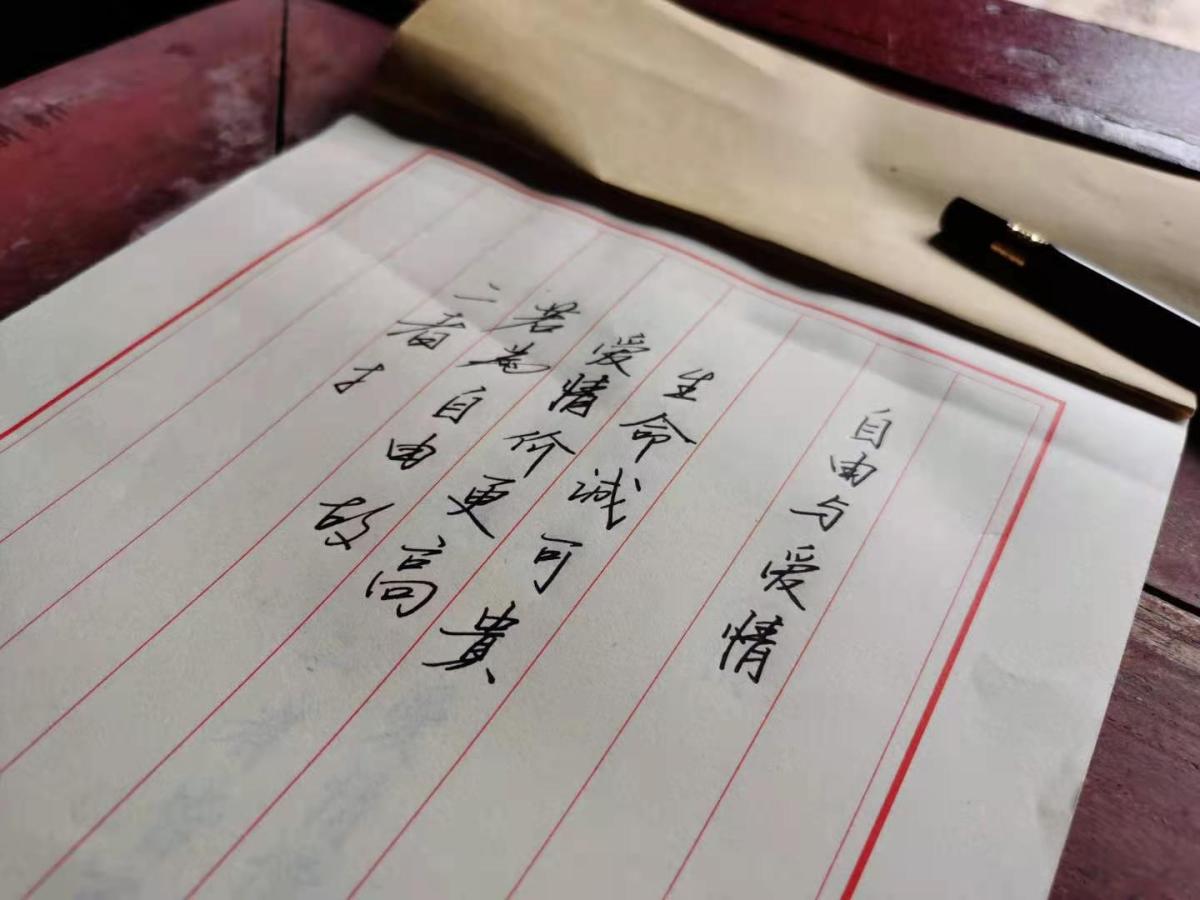 自由与爱情
生命诚可貴
爱情价更高
若為自由故
二者扌